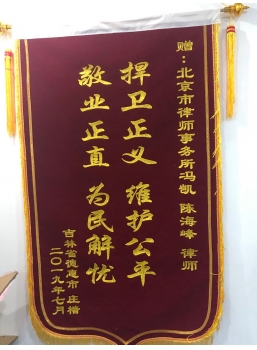 赠：北京市律师事务所冯凯 陈海峰 律师
捍卫正义 维护公平
敬业正直 为民解忧
吉林省德惠市 庄楷
二〇一九年七月